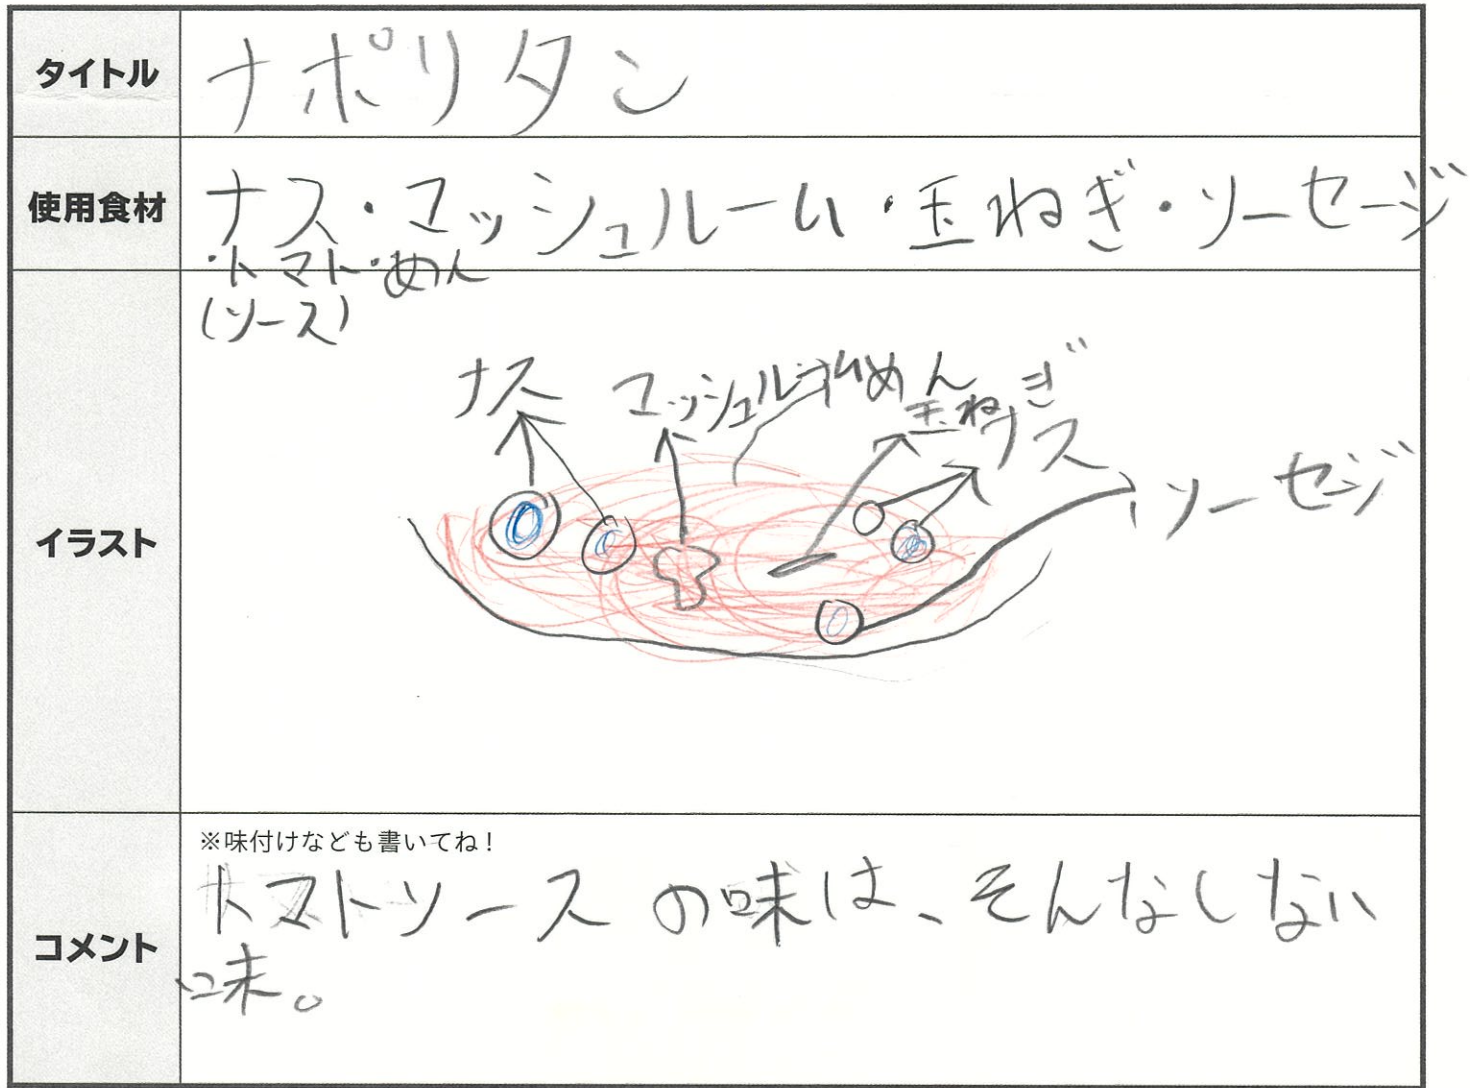 タイトル
ナポリタン
使用食材
ナス・マッシュルーム・玉ねぎ・ソーセージ
・トマト・めん
(ソース)
イラスト
ナス
マッシュルーム
めん
玉ねぎ
ナス
ソーセージ
コメント
※味付けなども書いてね!
トマトソースの味は、そんなしない
味。